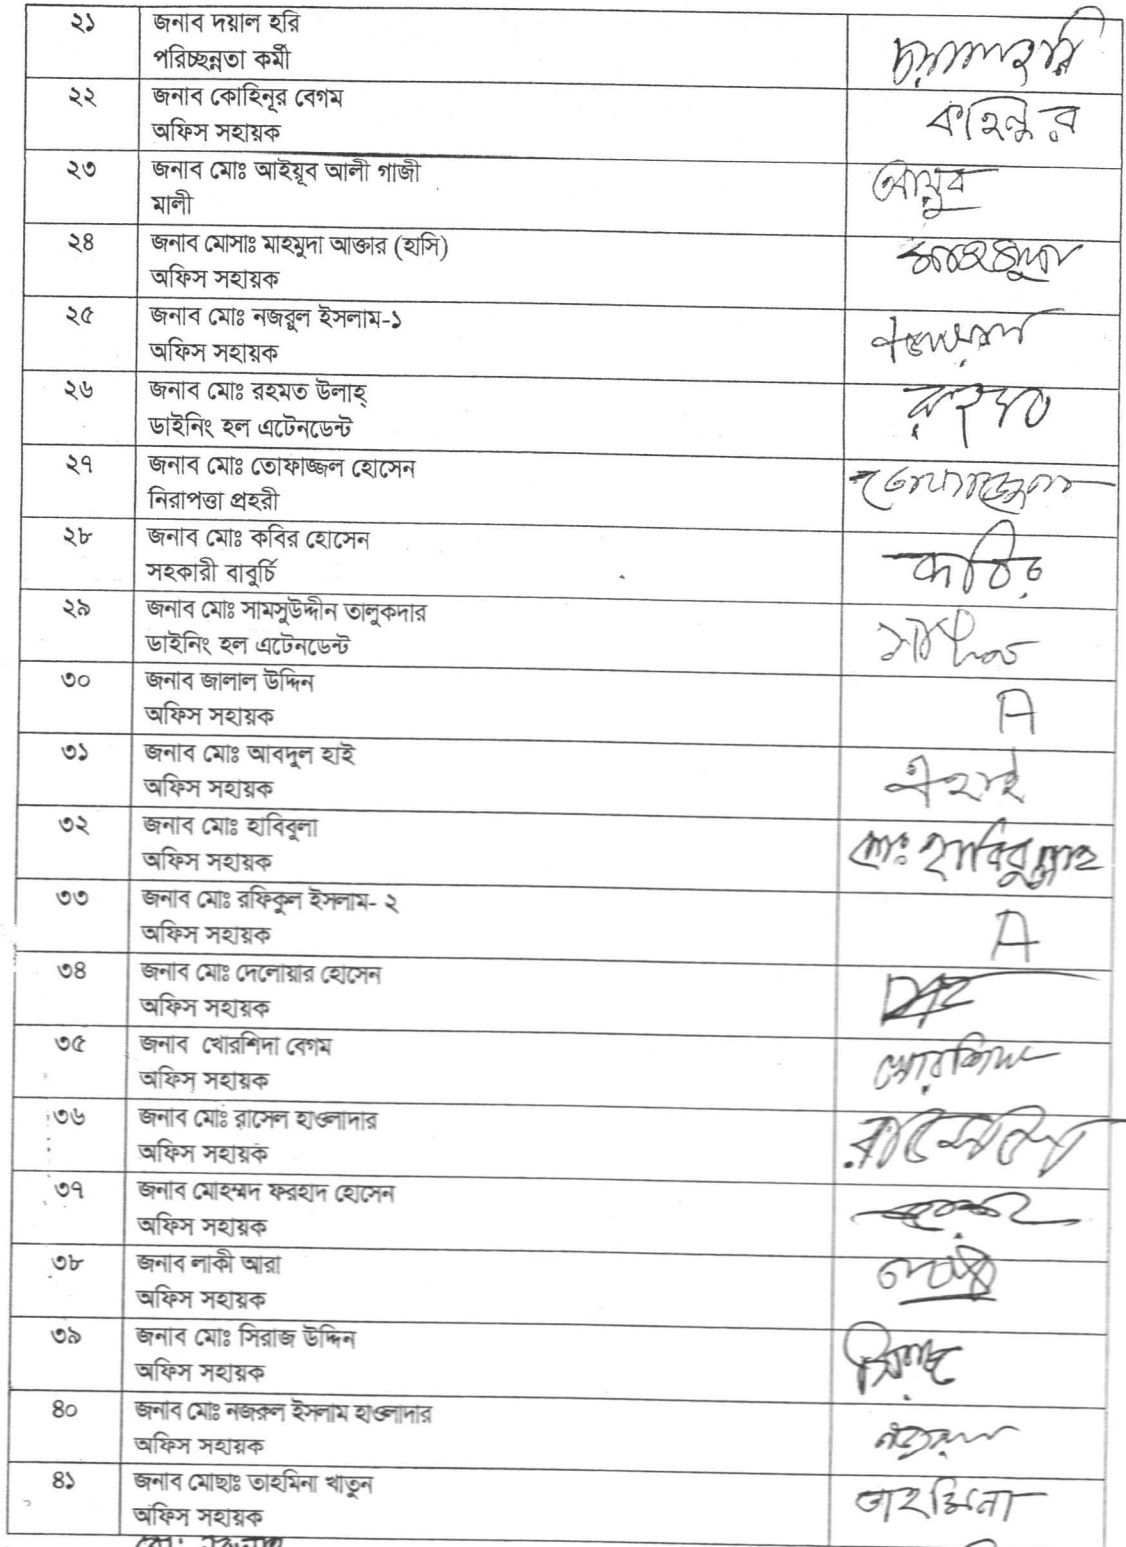 ২১ জনাব দয়াল হরি
পরিচ্ছন্নতা কর্মী
২২ জনাব কোহিনূর বেগম কহিনুর
অফিস সহায়ক
২৩ জনাব মোঃ আইয়ূব আলী গাজী আয়ুব
মালী
২৪ জনাব মোসাঃ মাহমুদা আক্তার (হাসি) মাহমুদা
অফিস সহায়ক
২৫ জনাব মোঃ নজরুল ইসলাম-১
অফিস সহায়ক
২৬ জনাব মোঃ রহমত উলাহ্ রহমত
ডাইনিং হল এটেনডেন্ট
২৭ জনাব মোঃ তোফাজ্জল হোসেন
নিরাপত্তা প্রহরী
২৮ জনাব মোঃ কবির হোসেন কবির
সহকারী বাবুর্চি
২৯ জনাব মোঃ সামসুউদ্দীন তালুকদার
ডাইনিং হল এটেনডেন্ট
৩০ জনাব জালাল উদ্দিন
অফিস সহায়ক A
৩১ জনাব মোঃ আবদুল হাই
অফিস সহায়ক এহাই
৩২ জনাব মোঃ হাবিবুলা
অফিস সহায়ক মোঃ হাবিবুল্লাহ
৩৩ জনাব মোঃ রফিকুল ইসলাম- ২
অফিস সহায়ক A
৩৪ জনাব মোঃ দেলোয়ার হোসেন
অফিস সহায়ক
৩৫ জনাব খোরশিদা বেগম
অফিস সহায়ক খোরশিদা
৩৬ জনাব মোঃ রাসেল হাওলাদার
অফিস সহায়ক
৩৭ জনাব মোহম্মদ ফরহাদ হোসেন
অফিস সহায়ক
৩৮ জনাব লাকী আরা
অফিস সহায়ক
৩৯ জনাব মোঃ সিরাজ উদ্দিন
অফিস সহায়ক সিরাজ
৪০ জনাব মোঃ নজরুল ইসলাম হাওলাদার
অফিস সহায়ক
৪১ জনাব মোছাঃ তাহমিনা খাতুন
অফিস সহায়ক তাহমিনা